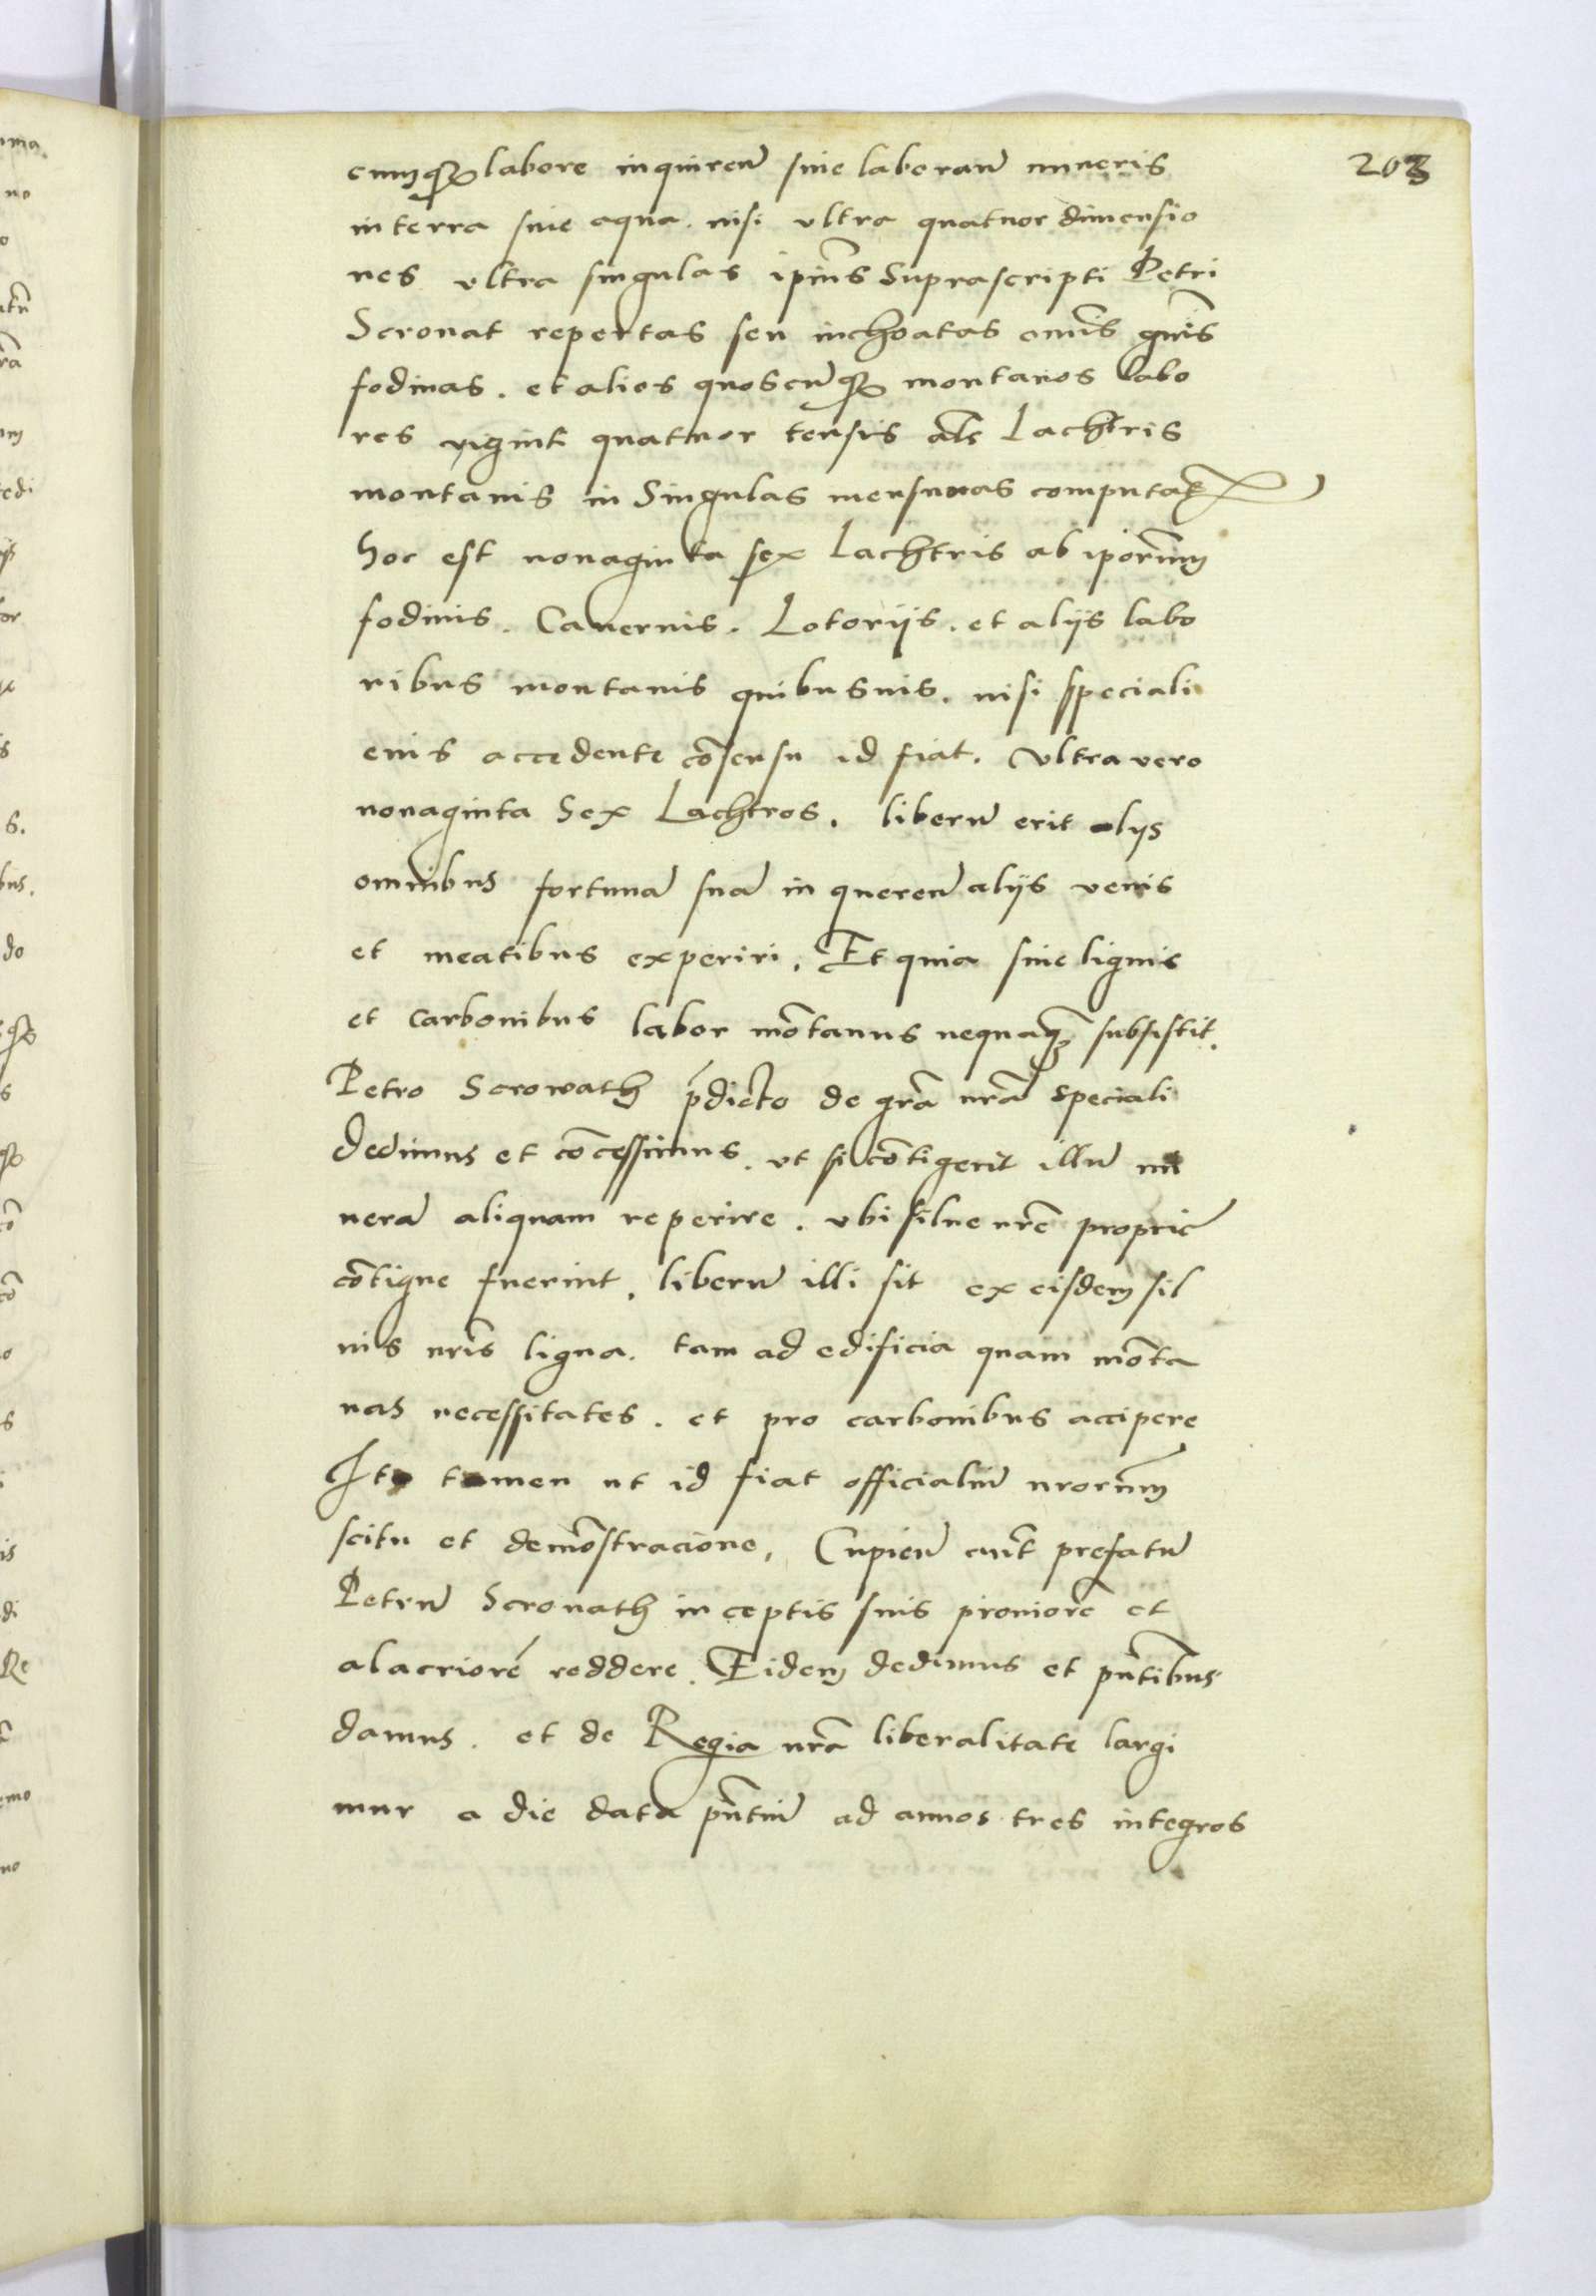 203
cumq₃ labore inquireñ siue laborañ mineris
in terra siue aqua. nisi vltra quatuor dimensio
nes vltra singulas ipius̃ Suprascripti Petri
Scronat repertas seu inchoatas omis̃ gnis̃
fodinas. et alios quoscunq₃ montanos labo
res viginti quatuor tensis als Lachtris
montanis in Singulas mensuras computat
hoc est nonaginta sex Lachtris ab ipor̃um
fodinis. Cauernis. Lotorijs. et alijs labo
ribus montanis quibusuis. nisi speciali
eius accedente cõsensu id fiat. Vltra vero
nonaginta Sex Lachtros. liberũ erit alys
omnibus fortunã suã in querenđ alijs venis
et meatibus experiri. Et quia sine lignis
et Carbonibus labor mõtanus nequaq₃ subsistit.
Petro Scrowath p̃dicto de grã nrã speciali
Dedimus et cõcessimus. vt si cõtigerit illũ mi
nerã aliquam reperire. vbi silue nrẽ proprie
cõtigue fuerint, liberũ illi sit ex eisdem sil
uis nrĩs ligna. tam ad edificia quam mõta
nas necessitates. et pro carbonibus accipere
Ita tamen ut id fiat officialiũ nror̃um
scitu et demõstracione, Cupieñ aut̃ prefatũ
Petrũ Scronath in ceptis suis proniorẽ et
alacriorẽ reddere. Eidem dedimus et pñtibus
damus. et de Regia nrã liberalitate largi
mur a die data pñtiũ ad annos tres integros